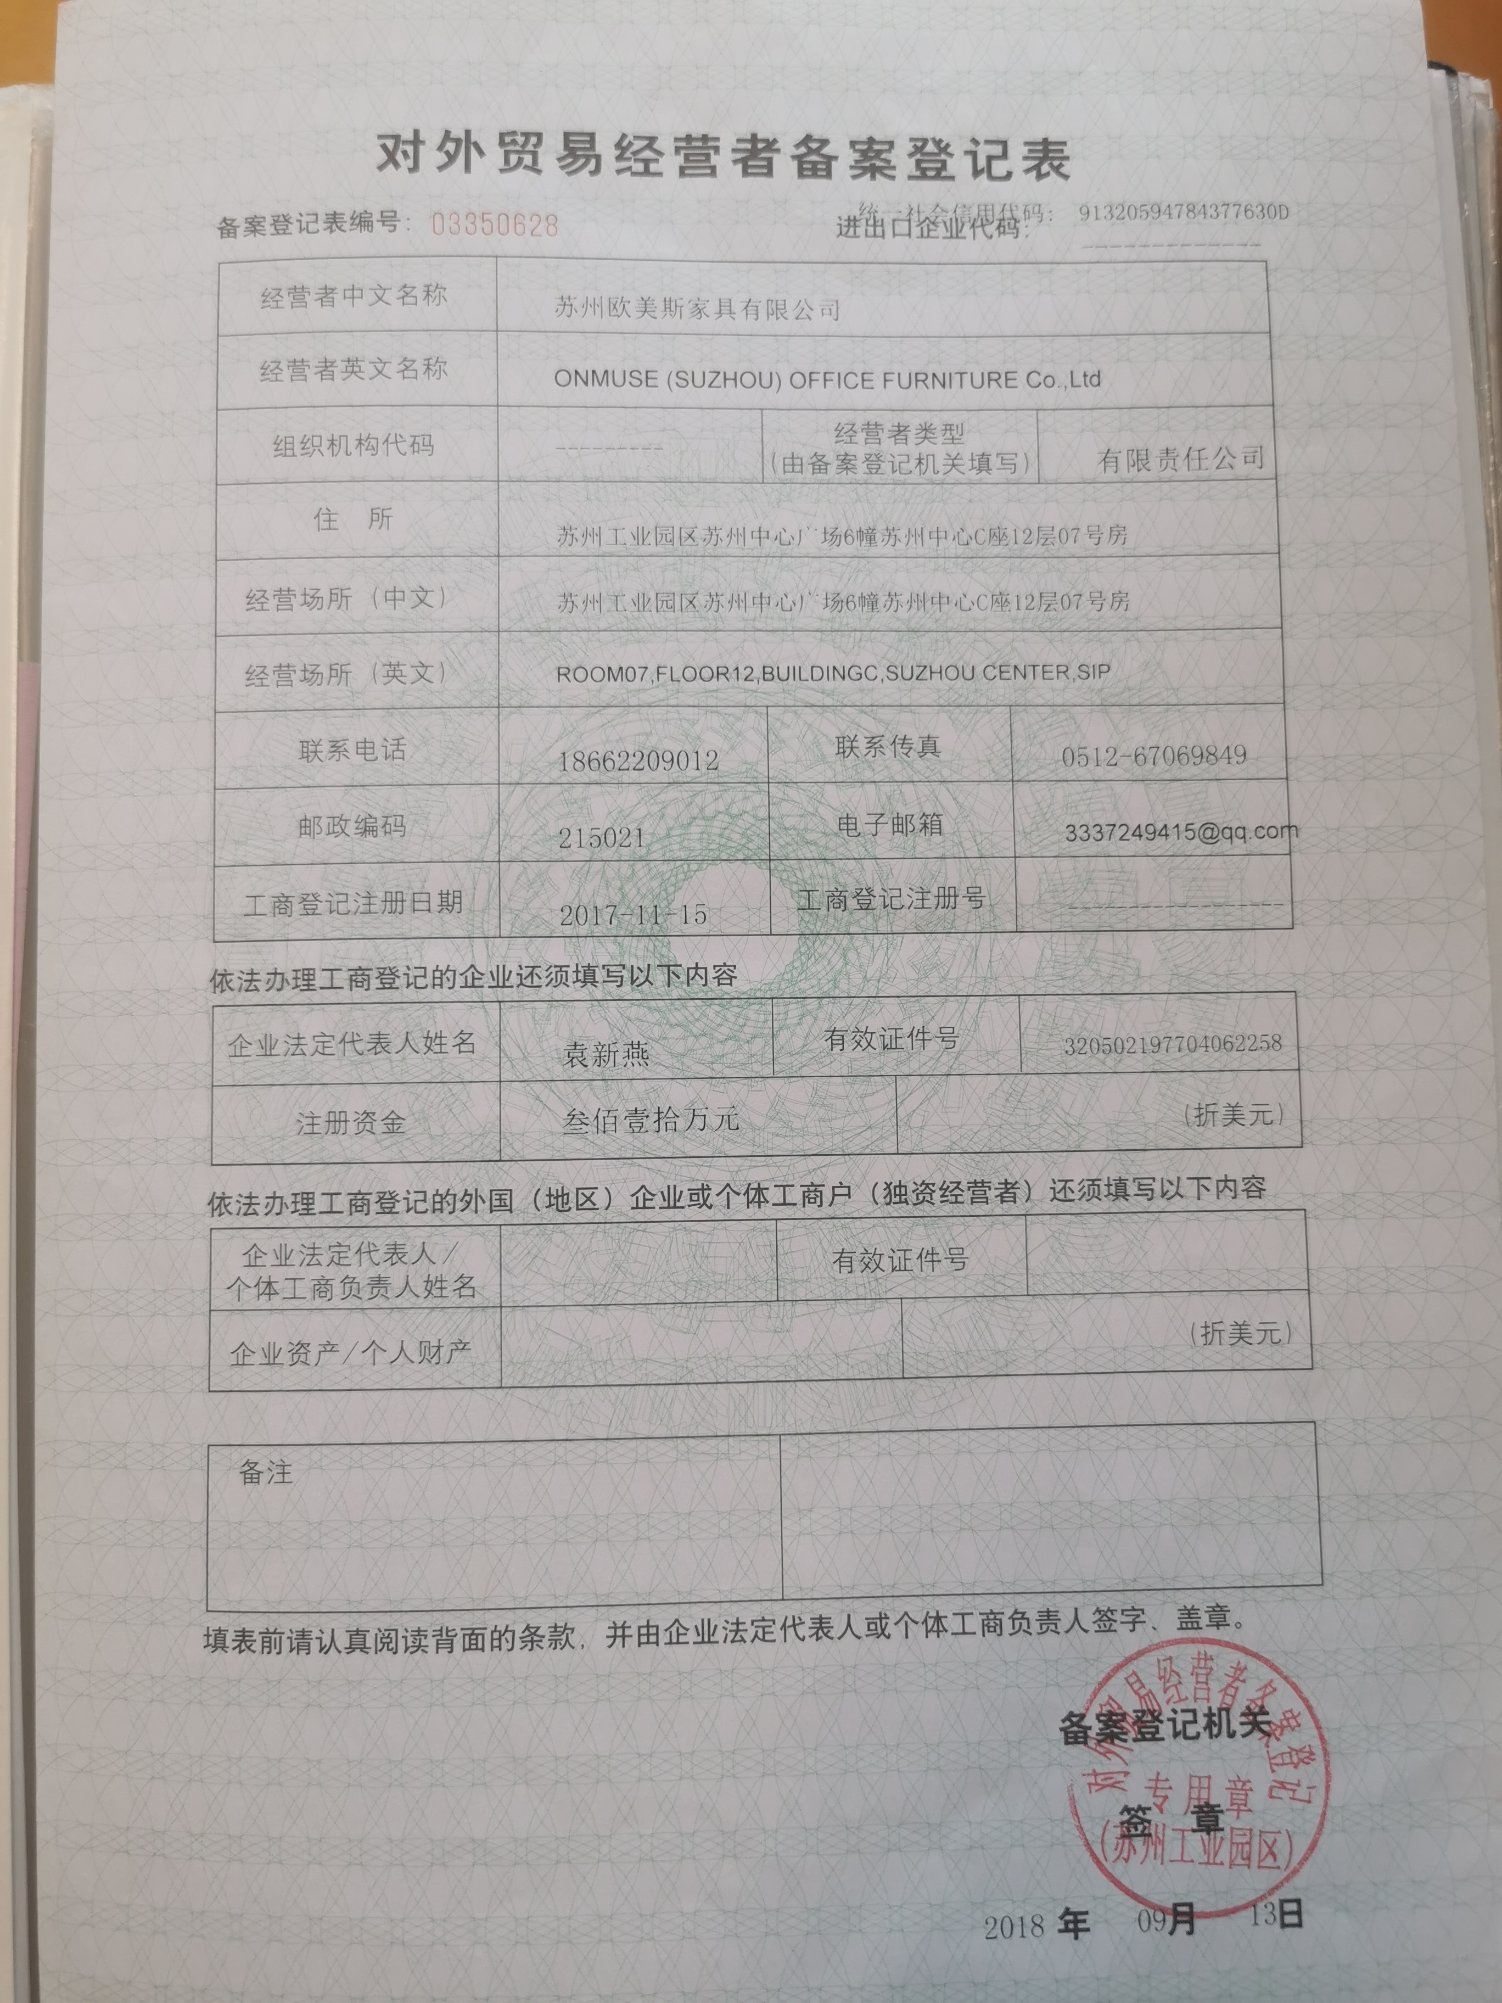 对外贸易经营者备案登记表
统一社会信用代码： 91320594784377630D
备案登记表编号： 03350628 进出口企业代码： -------------
经营者中文名称 苏州欧美斯家具有限公司
经营者英文名称 ONMUSE (SUZHOU) OFFICE FURNITURE Co.,Ltd
组织机构代码 --------- 经营者类型
(由备案登记机关填写) 有限责任公司
住 所 苏州工业园区苏州中心广场6幢苏州中心C座12层07号房
经营场所（中文） 苏州工业园区苏州中心广场6幢苏州中心C座12层07号房
经营场所（英文） ROOM07,FLOOR12,BUILDINGC,SUZHOU CENTER,SIP
联系电话 18662209012 联系传真 0512-67069849
邮政编码 215021 电子邮箱 3337249415@qq.com
工商登记注册日期 2017-11-15 工商登记注册号 ------------------
依法办理工商登记的企业还须填写以下内容
企业法定代表人姓名 袁新燕 有效证件号 320502197704062258
注册资金 叁佰壹拾万元 (折美元)
依法办理工商登记的外国（地区）企业或个体工商户（独资经营者）还须填写以下内容
企业法定代表人/
个体工商负责人姓名 有效证件号
企业资产/个人财产 (折美元)
备注
填表前请认真阅读背面的条款，并由企业法定代表人或个体工商负责人签字、盖章。
对外贸易经营者备案登记
备案登记机关
专用章
签 章
(苏州工业园区)
2018 年 09月 13日